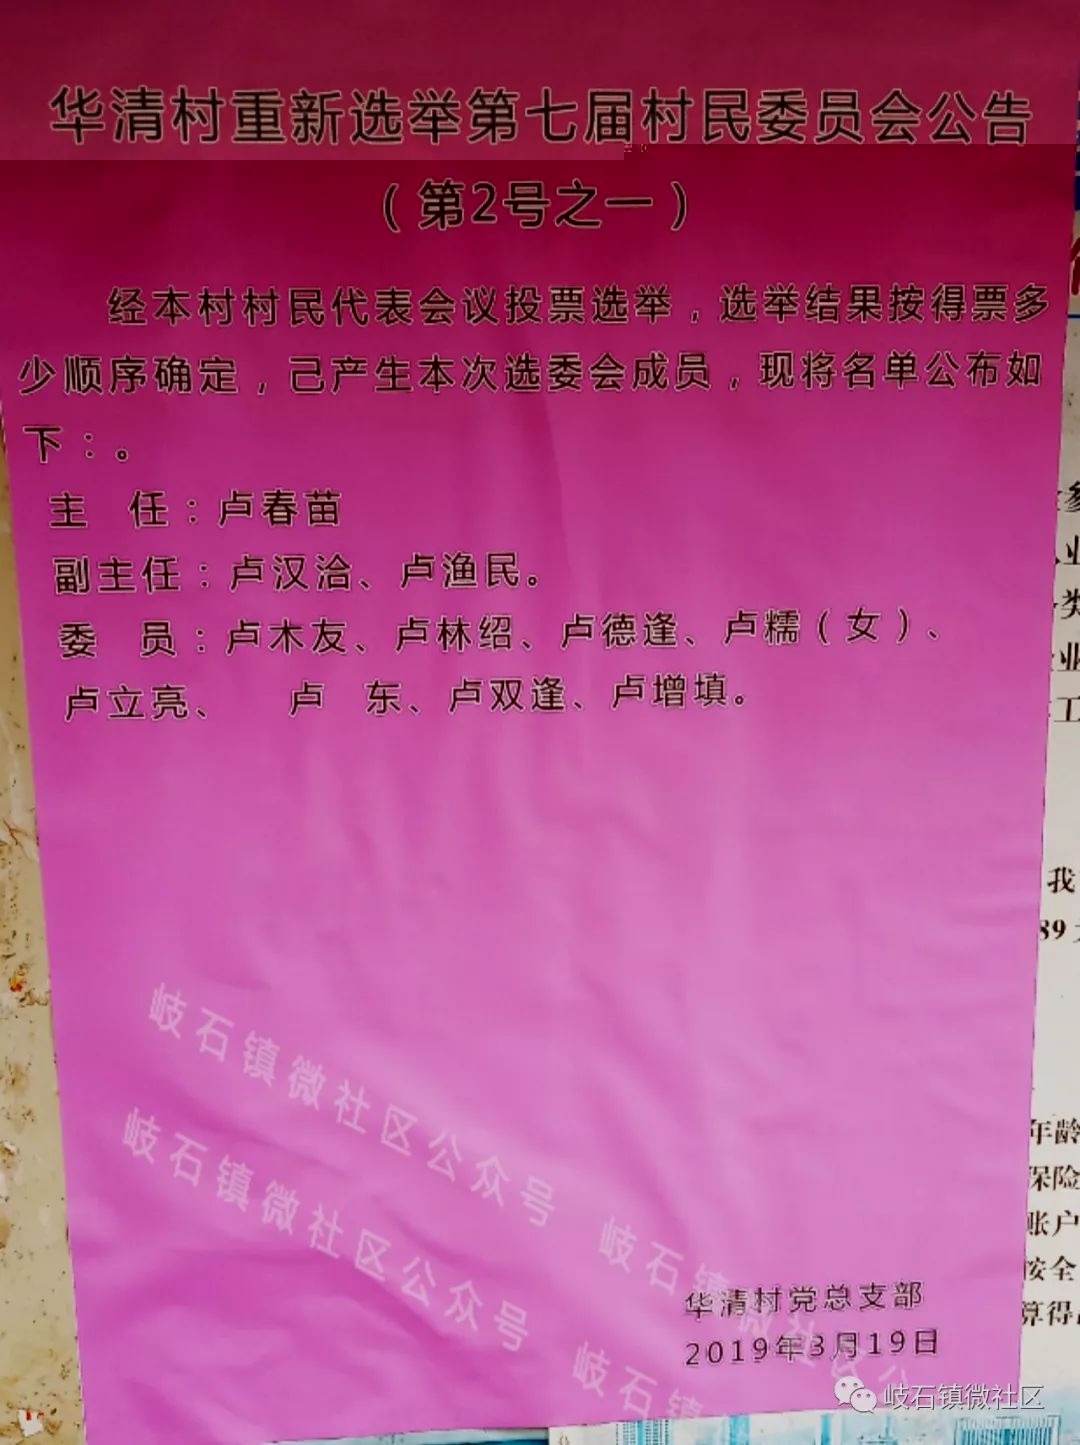 华清村重新选举第七届村民委员会公告
（第2号之一）
经本村村民代表会议投票选举，选举结果按得票多
少顺序确定，己产生本次选委会成员，现将名单公布如
下：。
主　任：卢春苗
副主任：卢汉洽、卢渔民。
委　员：卢木友、卢林绍、卢德逢、卢糯（女）、
卢立亮、　卢　东、卢双逢、卢增填。
岐石镇微社区公众号
岐石镇微社区公众号
岐石镇微社区公
岐石镇
华清村党总支部
2019年3月19日
岐石镇微社区
我
89
年龄
保险
账户
按全
算得